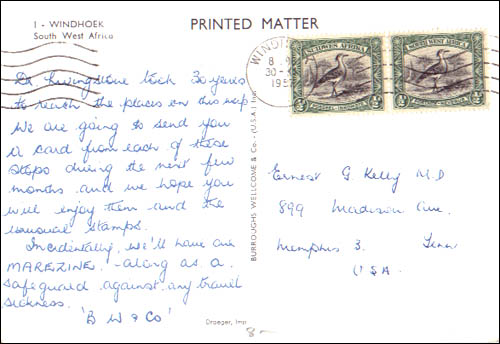 1 - WINDHOEK
South West Africa
PRINTED MATTER
WINDH
8 -
30 -
195
SUIDWES AFRIKA
SOUTH WEST AFRICA
POSSEEL-INKOMSTE
POSTAGE-REVENUE
½d
½d
Dr Livingstone took 30 years
to reach the places on this map
We are going to send you
a card from each of these
stops during the next few
months and we hope you
will enjoy them and the
unusual stamps.
Incidentally, we'll have our
'MAREZINE' along as a
safeguard against any travel
sickness.
'B W & Co'
BURROUGHS WELLCOME & Co. - (U.S.A.) Inc
Ernest G. Kelly M.D
899 Madison Ave.
Memphis 3. Tenn
U S A.
Draeger, Imp
8-